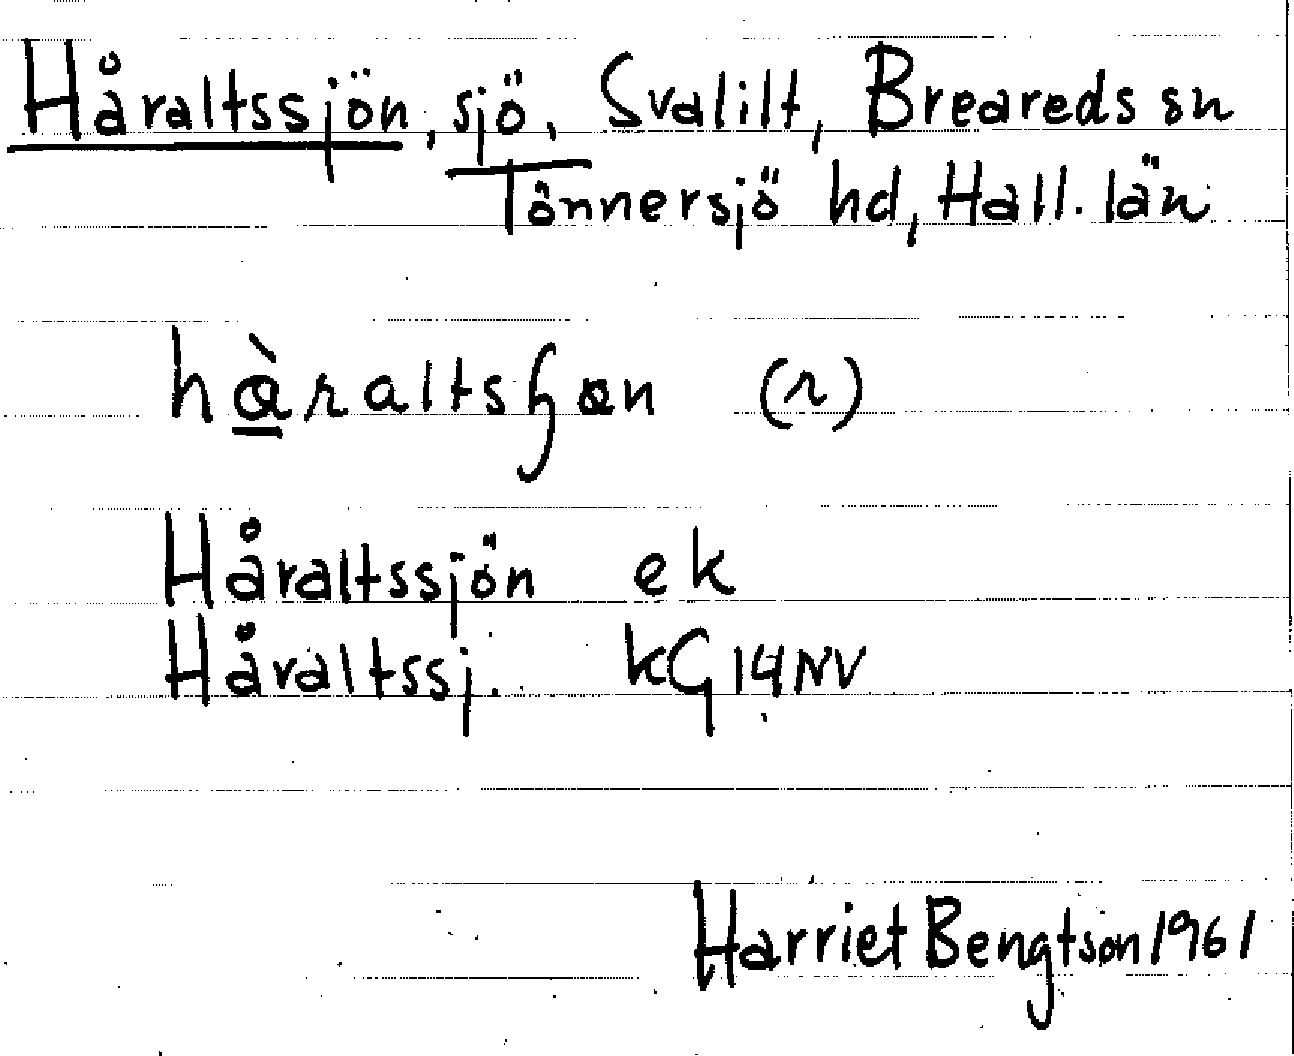 Håraltssjön, sjö, Svalilt, Breareds sn
Tönnersjö hd, Hall. län
hàraltsɧøn (r)
Håraltssjön ek
Håraltssj. kG14NV
Harriet Bengtson 1961